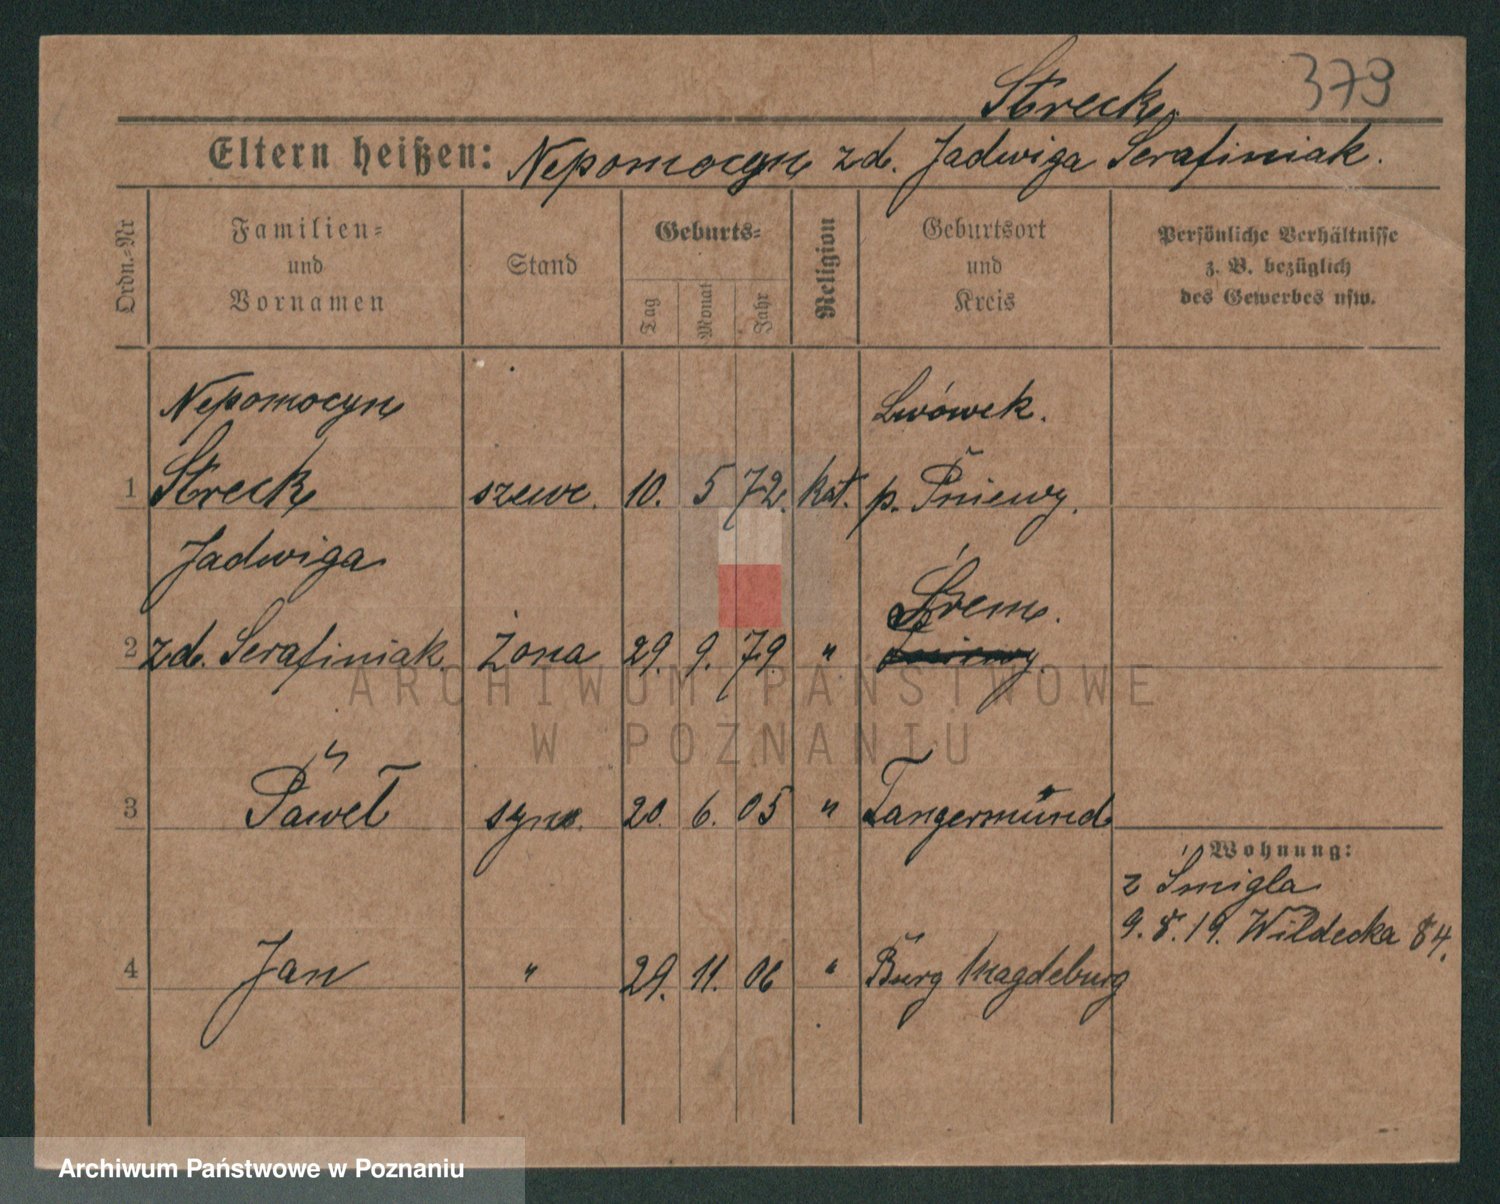 379
Streck
Eltern heißen: Nepomocyn zd. Jadwiga Serafiniak.
Ordn.-Nr
Familien-
und
Vornamen
Stand
Geburts-
Tag
Monat
Jahr
Religion
Geburtsort
und
Kreis
Persönliche Verhältnisse
z. B. bezüglich
des Gewerbes usw.
Nepomocyn Lwówek.
1 Streck szewc. 10. 5 72. kat. p. Pniewy.
Jadwiga Śrem.
2 zd. Serafiniak żona 29. 9. 79. "
3 Paweł syn. 20. 6. 05 " Tangermünd
4 Jan " 29. 11. 06 " Burg Magdeburg
Wohnung:
z Śmigla
9. 8. 19. Wildecka 84.
ARCHIWUM PAŃSTWOWE
W POZNANIU
Archiwum Państwowe w Poznaniu